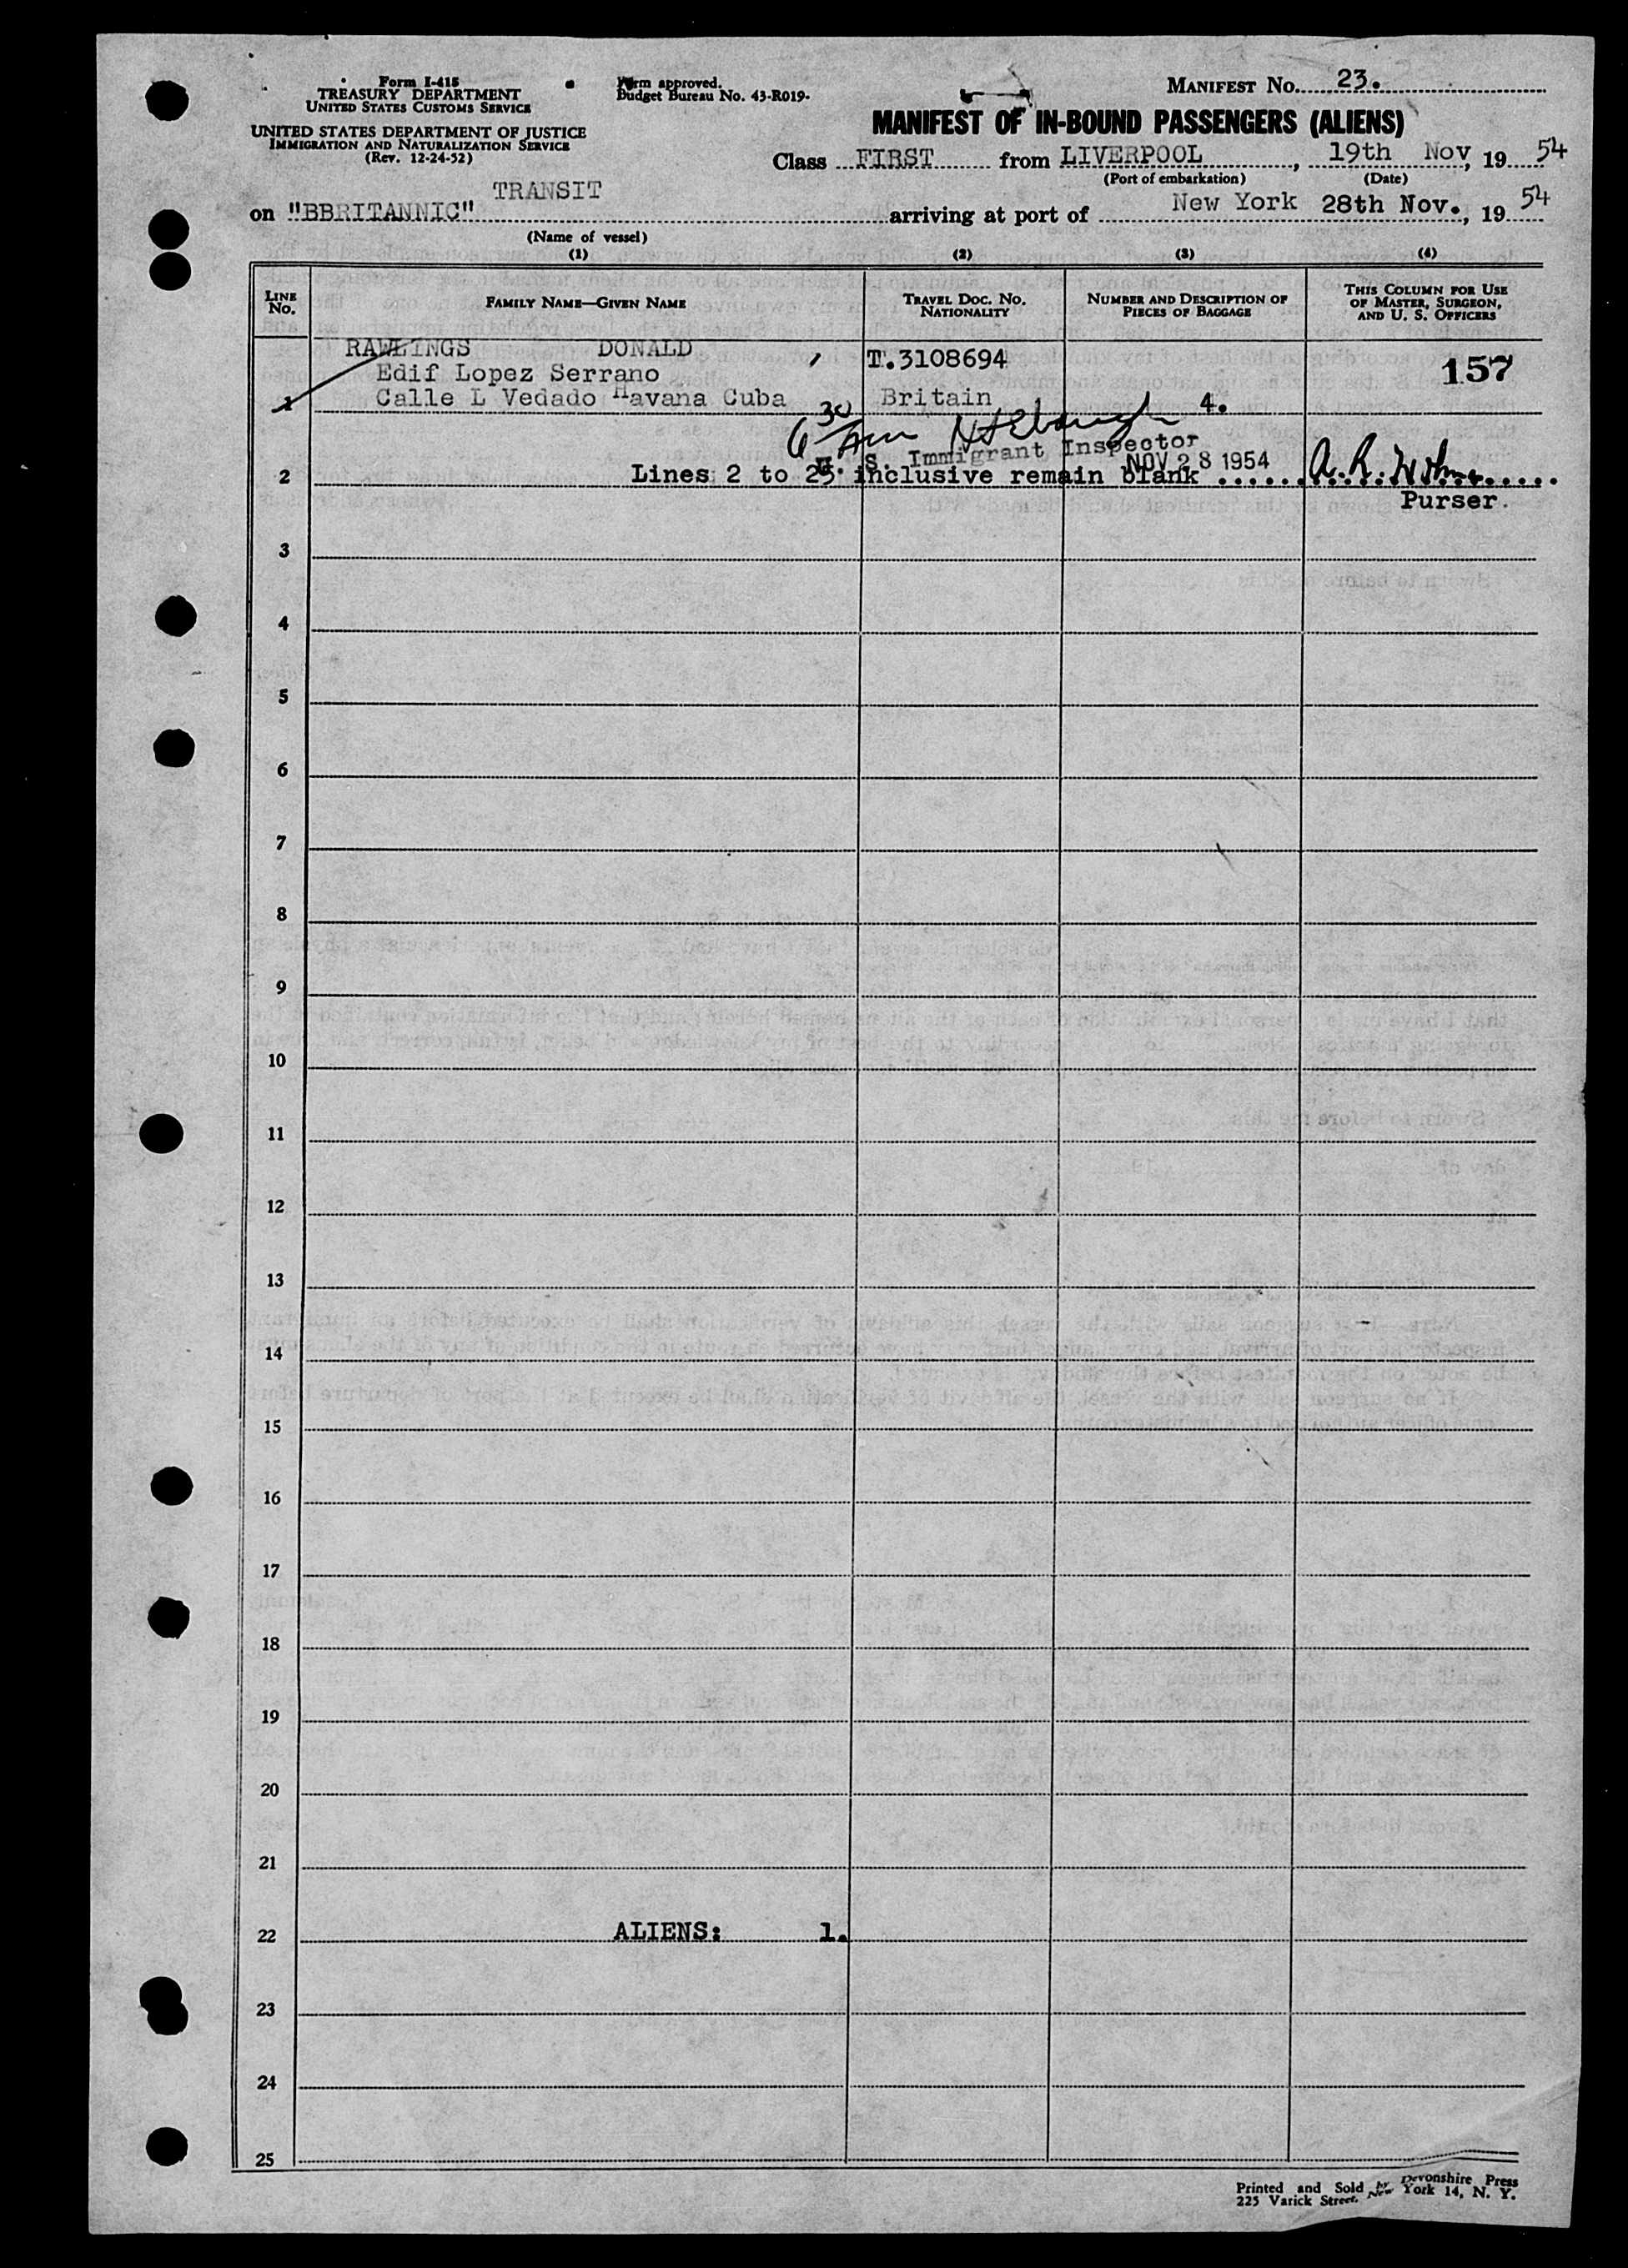 Form I-415
TREASURY DEPARTMENT
UNITED STATES CUSTOMS SERVICE
UNITED STATES DEPARTMENT OF JUSTICE
IMMIGRATION AND NATURALIZATION SERVICE
(Rev. 12-24-52)
Form approved.
Budget Bureau No. 43-R019.
MANIFEST NO. 23.
MANIFEST OF IN-BOUND PASSENGERS (ALIENS)
Class FIRST from LIVERPOOL, 19th Nov, 19 54
(Port of embarkation) (Date)
TRANSIT
on "BBRITANNIC" arriving at port of New York 28th Nov., 19 54
(Name of vessel)
(1) (2) (3) (4)
LINE NO. FAMILY NAME—GIVEN NAME TRAVEL DOC. NO. NATIONALITY NUMBER AND DESCRIPTION OF PIECES OF BAGGAGE THIS COLUMN FOR USE OF MASTER, SURGEON, AND U. S. OFFICERS
RAWLINGS DONALD T.3108694 157
Edif Lopez Serrano
1 Calle L Vedado Havana Cuba Britain 4.
6 30 Am
U. S. Immigrant Inspector
NOV 28 1954
2 Lines 2 to 25 inclusive remain blank ...... A. R.
Purser.
3
4
5
6
7
8
9
10
11
12
13
14
15
16
17
18
19
20
21
22 ALIENS: 1.
23
24
25
Printed and Sold by Devonshire Press
225 Varick Street, New York 14, N. Y.